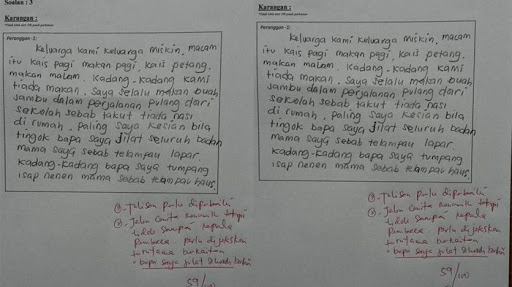 Soalan : 3
Karangan :
Perenggan -1:
Keluarga kami keluarga miskin, macam
itu kais pagi makan pagi, kais petang,
makan malam. Kadang-kadang kami
tiada makan. Saya selalu makan buah
jambu dalam perjalanan pulang dari
sekolah sebab takut tiada nasi
di rumah. Paling saya kesian bila
tingok bapa saya jilat seluruh badan
mama saya sebab telampau lapar.
Kadang-kadang bapa saya tumpang
isap nenen mama sebab telampau haus.
① - Tulisan perlu diperbaiki
② - Jalan cerita menarik tetapi
tidak sampai kepada
pembaca perlu dijelaskan
terutama berkaitan
- bapa saya jilat seluruh badan
59/100
Karangan :
Perenggan -1:
Keluarga kami keluarga miskin, macam
itu kais pagi makan pagi, kais petang,
makan malam. Kadang-kadang kami
tiada makan. Saya selalu makan buah
jambu dalam perjalanan pulang dari
sekolah sebab takut tiada nasi
di rumah. Paling saya kesian bila
tingok bapa saya jilat seluruh badan
mama saya sebab telampau lapar.
Kadang-kadang bapa saya tumpang
isap nenen mama sebab telampau haus.
① - Tulisan perlu diperbaiki
② - Jalan cerita menarik tetapi
tidak sampai kepada
pembaca perlu dijelaskan
terutama berkaitan
- bapa saya jilat seluruh badan
59/100